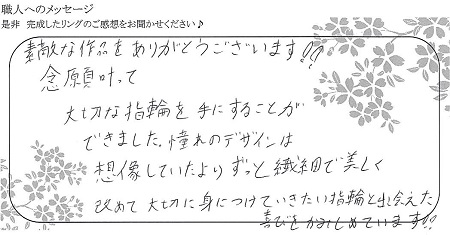 職人へのメッセージ
是非 完成したリングのご感想をお聞かせください♪
素敵な作品をありがとうございます!!
念願叶って
大切な指輪を手にすることが
できました。憧れのデザインは
想像していたよりずっと繊細で美しく
改めて大切に身につけていきたい指輪と出会えた
喜びをかみしめています!!